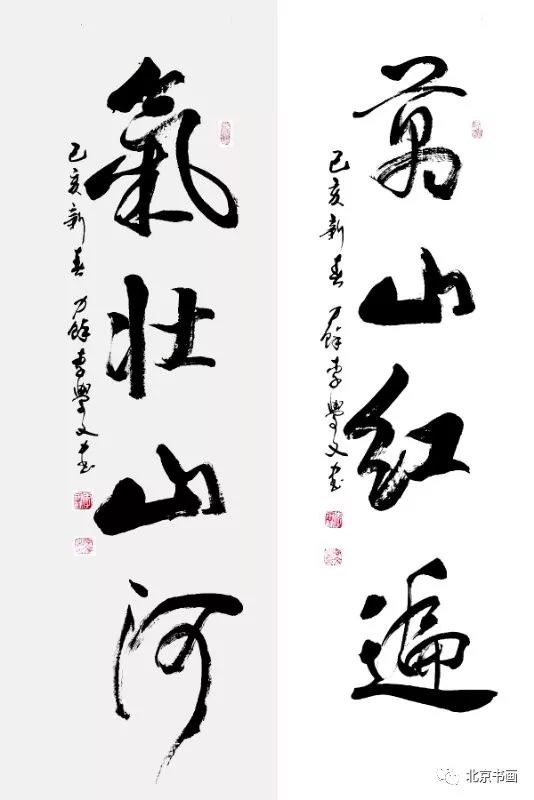 萬山红遍
己亥新春 刀餘李學文書
氣壯山河
己亥新春 刀餘李學文書
北京书画